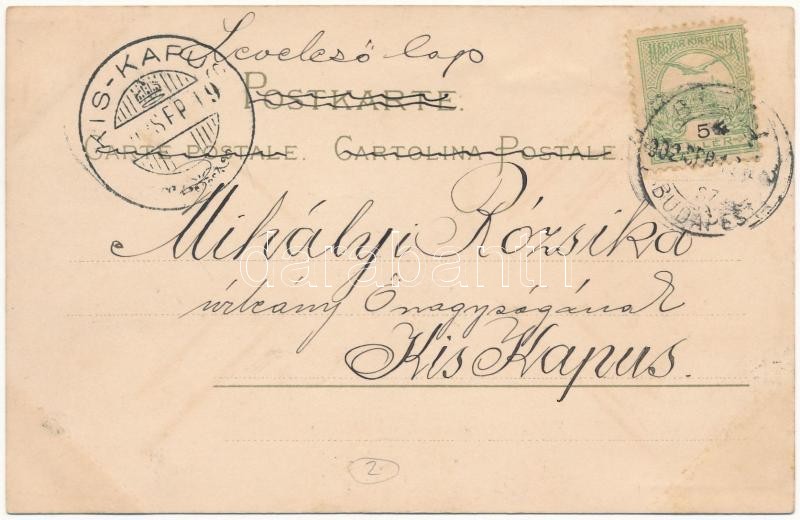 Levelező lap
POSTKARTE.
CARTE POSTALE. CARTOLINA POSTALE.
MAGYAR KIR. POSTA
5
KIS-KAPU
SEP 19
BUDAPEST
Mihályi Rózsika
úrleány Őnagyságának
Kis Kapus.
darabanth
2.